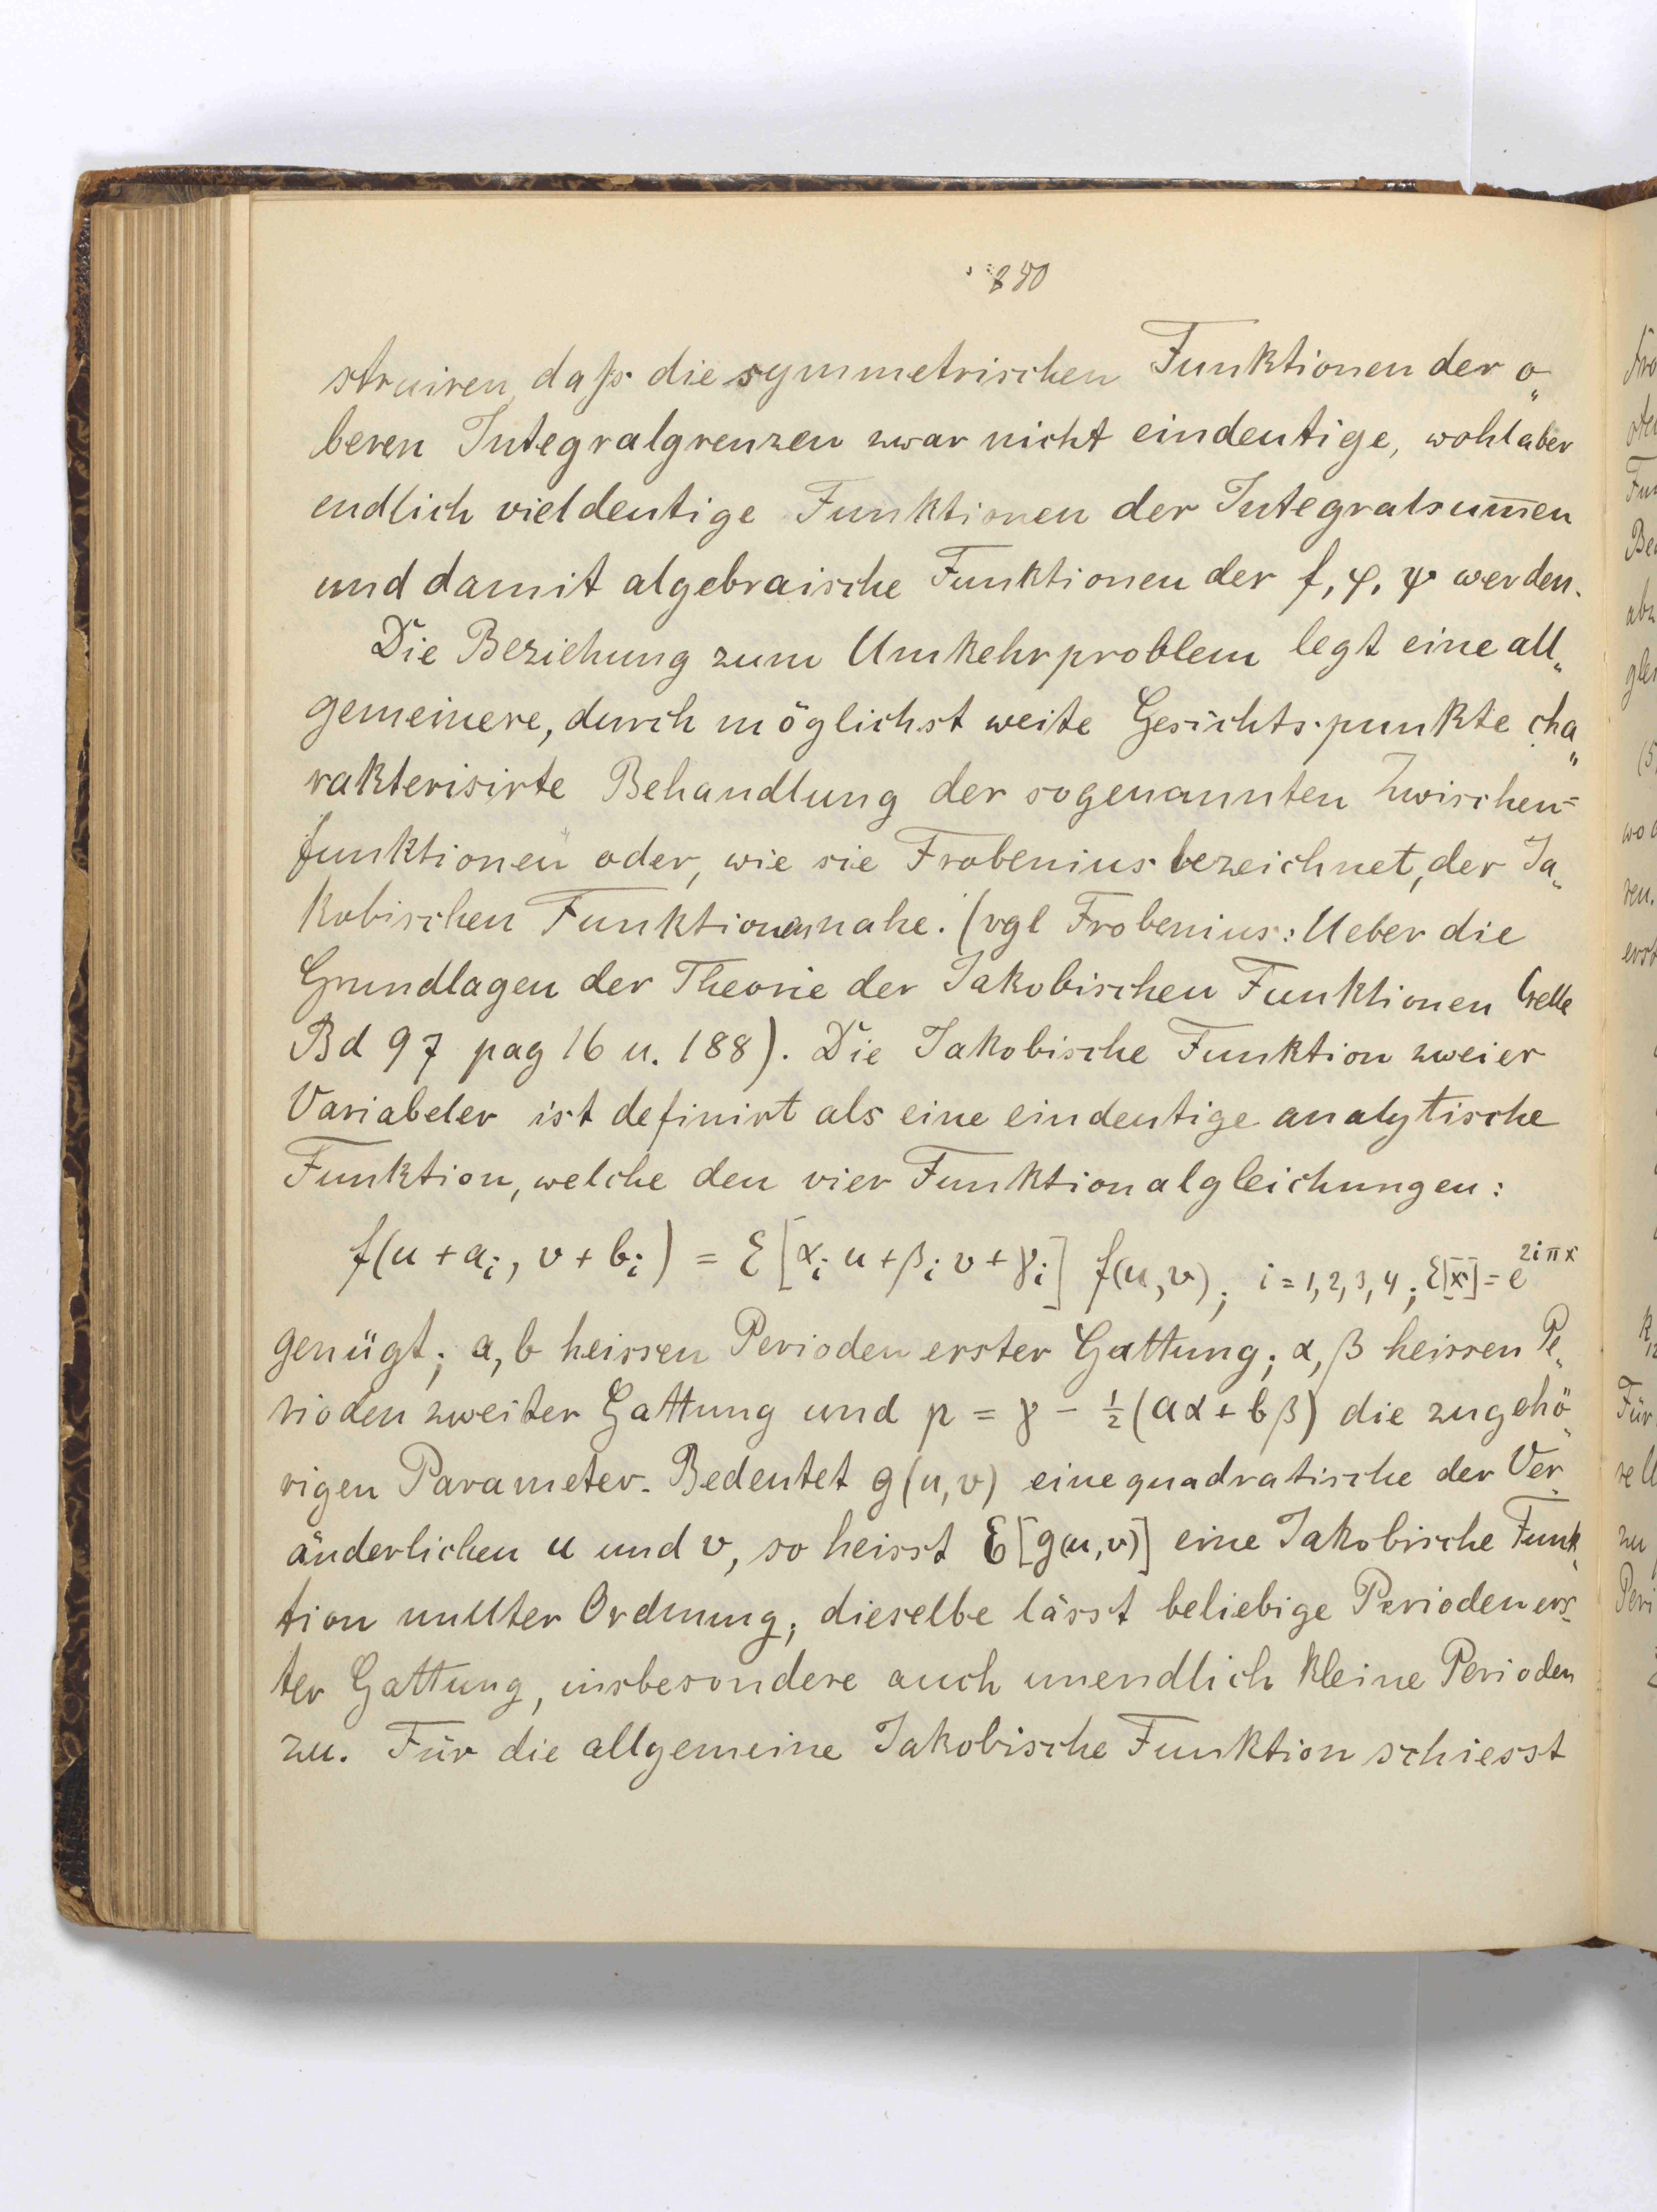 280
struiren, daſs die symmetrischen Funktionen der o„
beren Integralgrenzen zwar nicht eindeutige, wohl aber
endlich vieldeutige Funktionen der Integralsum̅en
und damit algebraische Funktionen der f, φ, ψ werden.
Die Beziehung zum Umkehrproblem legt eine all„
gemeinere, durch möglichst weite Gesichtspunkte cha„
rakterisirte Behandlung der sogenannten Zwischen=
funktionen oder, wie sie Frobenius bezeichnet, der Ja„
kobischen Funktionen nahe. (vgl Frobenius: Ueber die
Grundlagen der Theorie der Jakobischen Funktionen Crelle
Bd 97 pag 16 u. 188). Die Jakobische Funktion zweier
Variabeler ist definirt als eine eindeutige analytische
Funktion, welche den vier Funktionalgleichungen:
f(u + aᵢ, v + bᵢ) = Ɛ[αᵢ u + βᵢ v + γᵢ] f(u, v); i = 1, 2, 3, 4; Ɛ[x] = e^{2iπx}
genügt; a, b heissen Perioden erster Gattung; α, β heissen Pe„
rioden zweiter Gattung und p = γ - ½(aα + bβ) die zugehö„
rigen Parameter. Bedeutet g(u, v) eine quadratische der Ver„
änderlichen u und v, so heisst Ɛ[g(u, v)] eine Jakobische Funk„
tion nullter Ordnung; dieselbe lässt beliebige Perioden ers„
ter Gattung, insbesondere auch unendlich kleine Perioden
zu. Für die allgemeine Jakobische Funktion schiesst